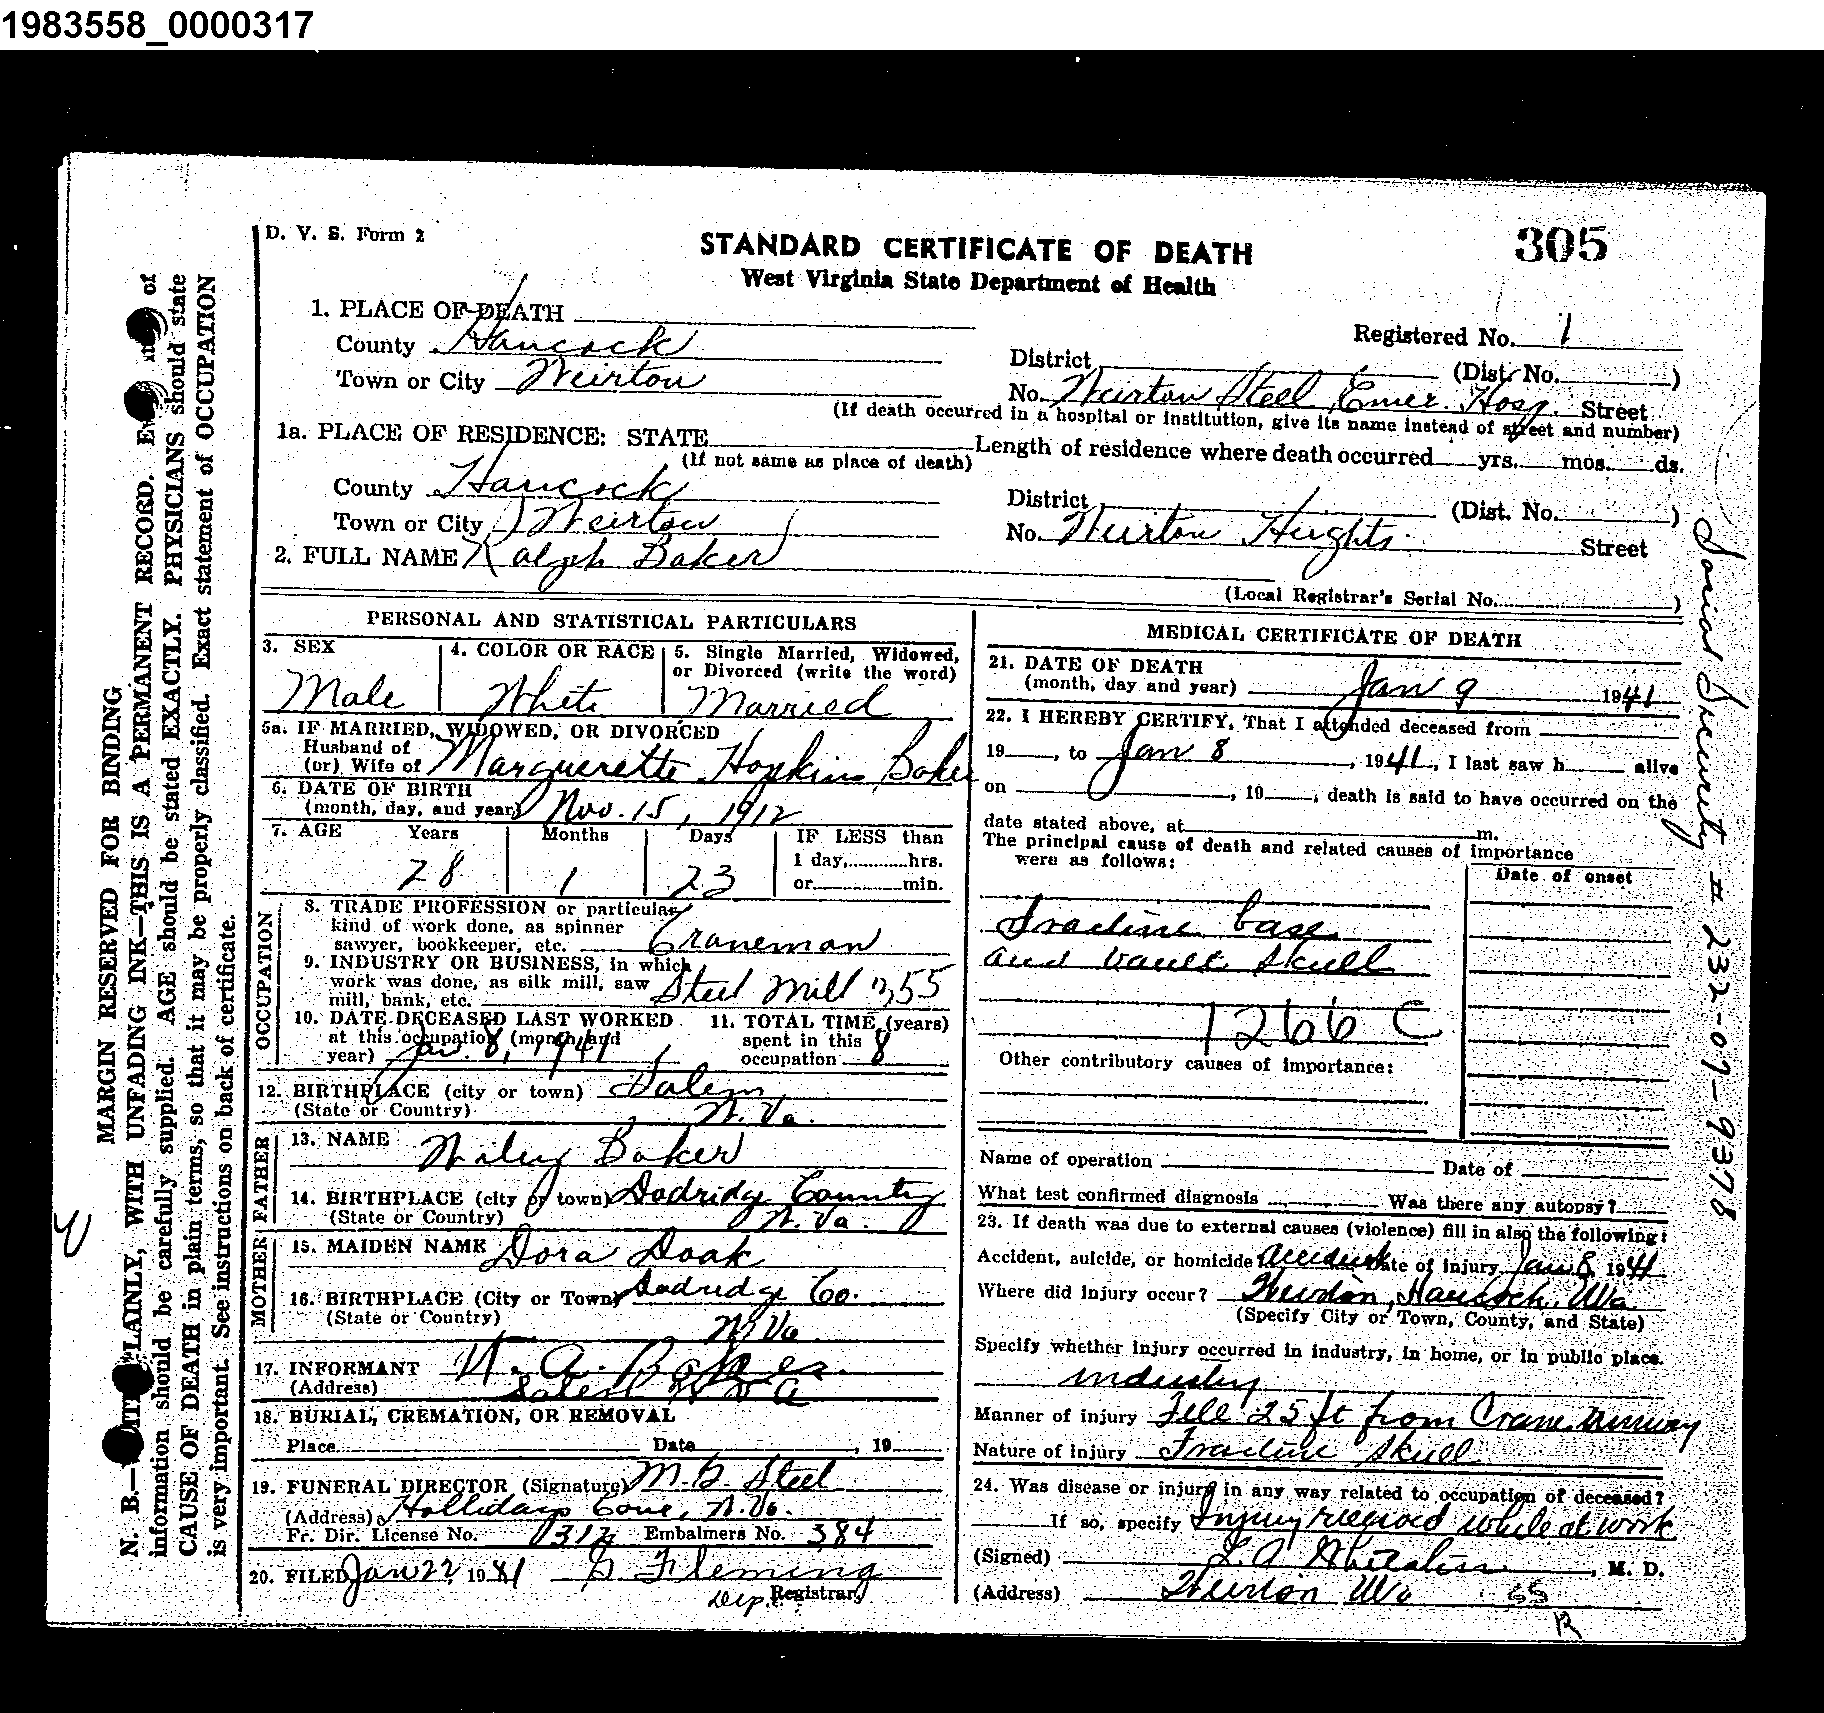 1983558_0000317
D. V. S. Form 2
STANDARD CERTIFICATE OF DEATH
305
West Virginia State Department of Health
1. PLACE OF DEATH
Registered No. 1
County Hancock
District (Dist. No. )
Town or City Weirton
No. Weirton Steel Emer. Hosp. Street
(If death occurred in a hospital or institution, give its name instead of street and number)
1a. PLACE OF RESIDENCE: STATE
Length of residence where death occurred yrs. mos. ds.
(If not same as place of death)
County Hancock
District (Dist. No. )
Town or City Weirton
No. Weirton Heights Street
2. FULL NAME Ralph Baker
(Local Registrar's Serial No. )
PERSONAL AND STATISTICAL PARTICULARS
3. SEX
Male
4. COLOR OR RACE
White
5. Single Married, Widowed,
or Divorced (write the word)
Married
5a. IF MARRIED, WIDOWED, OR DIVORCED
Husband of
(or) Wife of Marguerette Hopkins Baker
6. DATE OF BIRTH
(month, day, and year) Nov. 15, 1912
7. AGE Years Months Days IF LESS than
1 day, hrs.
28 1 23 or min.
OCCUPATION
8. TRADE PROFESSION or particular
kind of work done, as spinner
sawyer, bookkeeper, etc. Craneman
9. INDUSTRY OR BUSINESS, in which
work was done, as silk mill, saw
mill, bank, etc. Steel Mill 355
10. DATE DECEASED LAST WORKED
at this occupation (month and
year) Jan. 8, 1941
11. TOTAL TIME (years)
spent in this
occupation 8
12. BIRTHPLACE (city or town) Salem
(State or Country) W. Va.
FATHER
13. NAME Wiley Baker
14. BIRTHPLACE (city or town) Dodridge County
(State or Country) W. Va.
MOTHER
15. MAIDEN NAME Dora Doak
16. BIRTHPLACE (City or Town) Dodridge Co.
(State or Country) W Va
17. INFORMANT W. A. Baker
(Address) Salem W Va
18. BURIAL, CREMATION, OR REMOVAL
Place Date , 19
19. FUNERAL DIRECTOR (Signature) M. G. Steel
(Address) Hollidays Cove, W. Va.
Fr. Dir. License No. Embalmers No. 384
20. FILED Jan 22, 1941 G Fleming
Dep. Registrar
MEDICAL CERTIFICATE OF DEATH
21. DATE OF DEATH
(month, day and year) Jan 9 1941
22. I HEREBY CERTIFY, That I attended deceased from
19 , to Jan 8 , 1941, I last saw h alive
on , 19 , death is said to have occurred on the
date stated above, at m.
The principal cause of death and related causes of importance
were as follows:
Date of onset
Fracture base
and vault skull
1266 C
Other contributory causes of importance:
Name of operation Date of
What test confirmed diagnosis Was there any autopsy?
23. If death was due to external causes (violence) fill in also the following:
Accident, suicide, or homicide Accident Date of injury Jan 8, 1941
Where did injury occur? Weirton, Hancock, WVa
(Specify City or Town, County, and State)
Specify whether injury occurred in industry, in home, or in public place.
industry
Manner of injury Fell 25 ft from Crane runway
Nature of injury Fracture skull
24. Was disease or injury in any way related to occupation of deceased?
If so, specify Injury received while at work
(Signed) , M. D.
(Address) Weirton WVa
Social Security # 232-07-9378
MARGIN RESERVED FOR BINDING
N. B.— PLAINLY, WITH UNFADING INK—THIS IS A PERMANENT RECORD. of
information should be carefully supplied. AGE should be stated EXACTLY. PHYSICIANS should state
CAUSE OF DEATH in plain terms, so that it may be properly classified. Exact statement of OCCUPATION
is very important. See instructions on back of certificate.